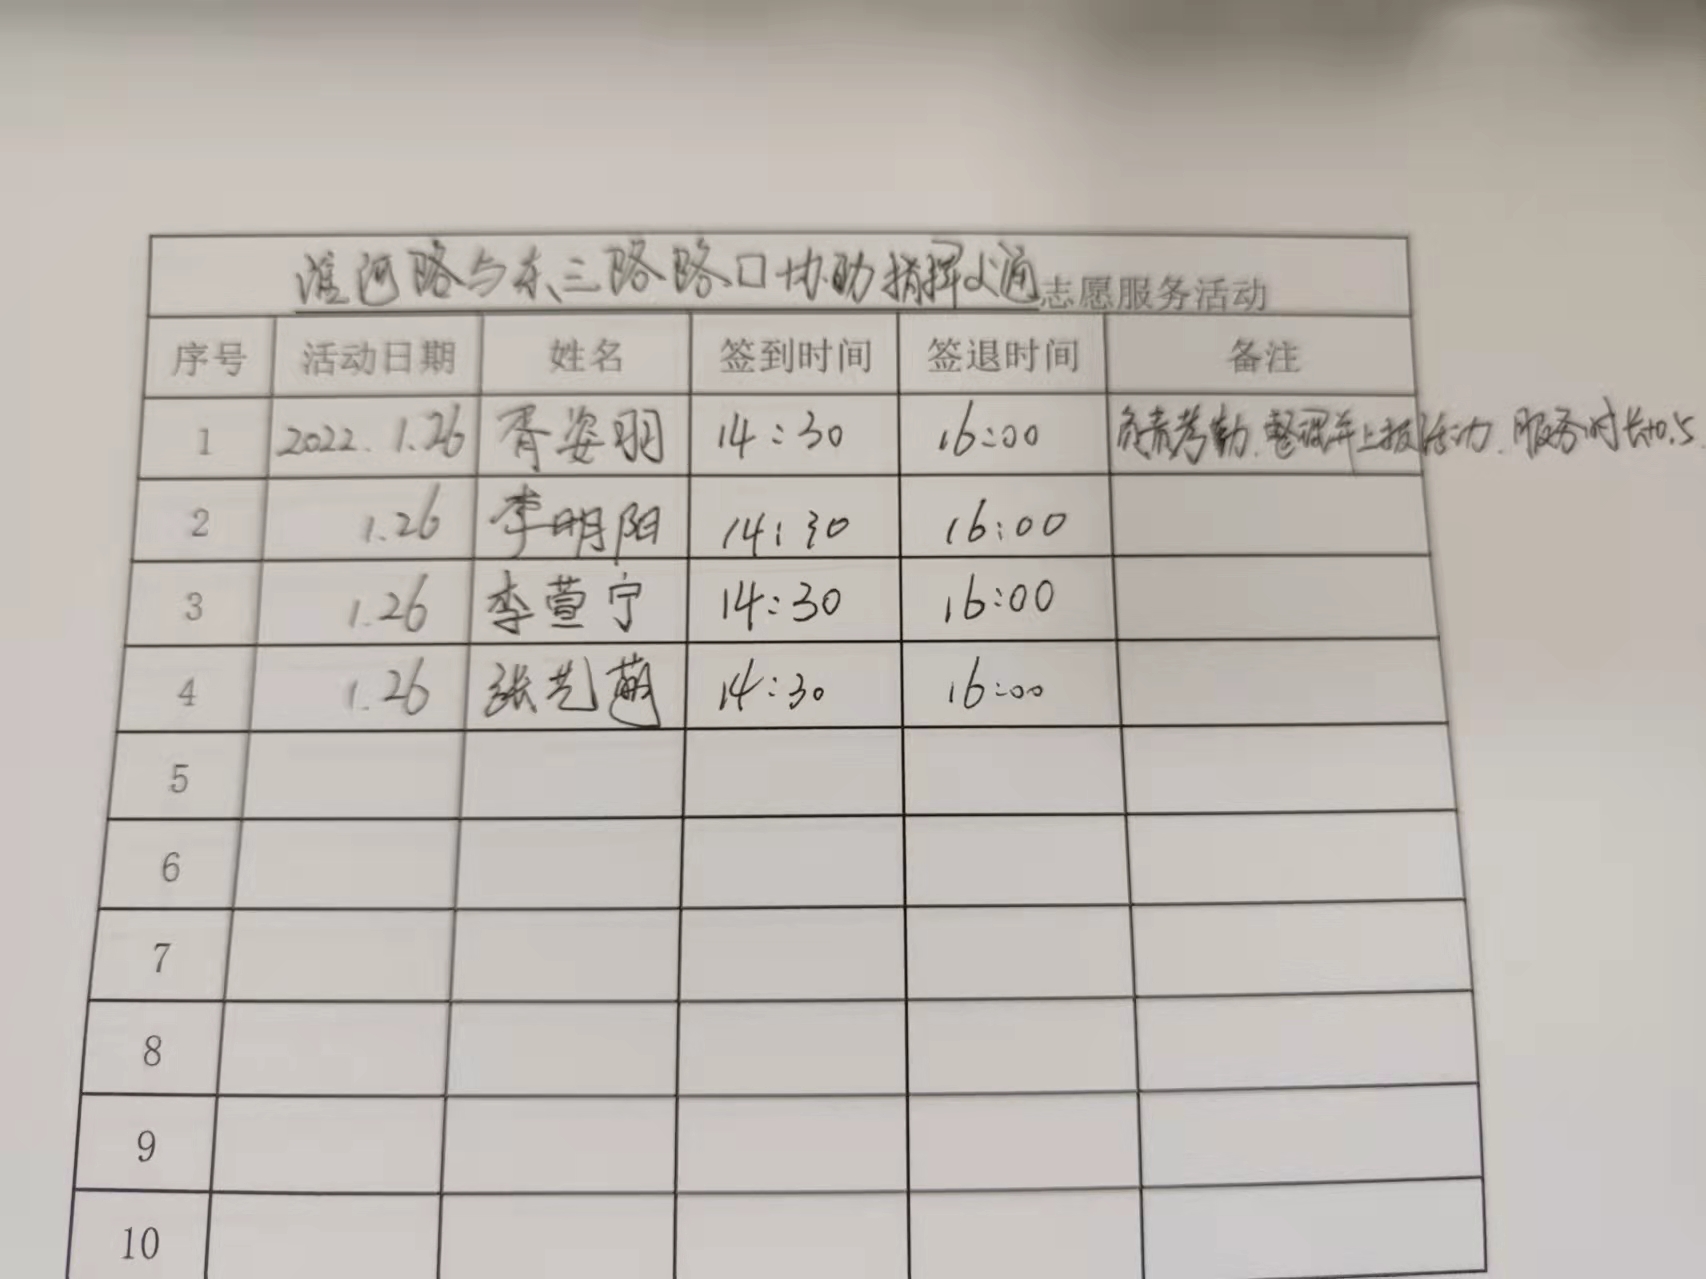 淮河路与东三路路口协助指挥交通志愿服务活动
序号 活动日期 姓名 签到时间 签退时间 备注
1 2022.1.26 胥姿羽 14:30 16:00 负责考勤、整理并上报活动、服务时长+0.5
2 1.26 李明阳 14:30 16:00
3 1.26 李萱宁 14:30 16:00
4 1.26 张艺萌 14:30 16:00
5
6
7
8
9
10